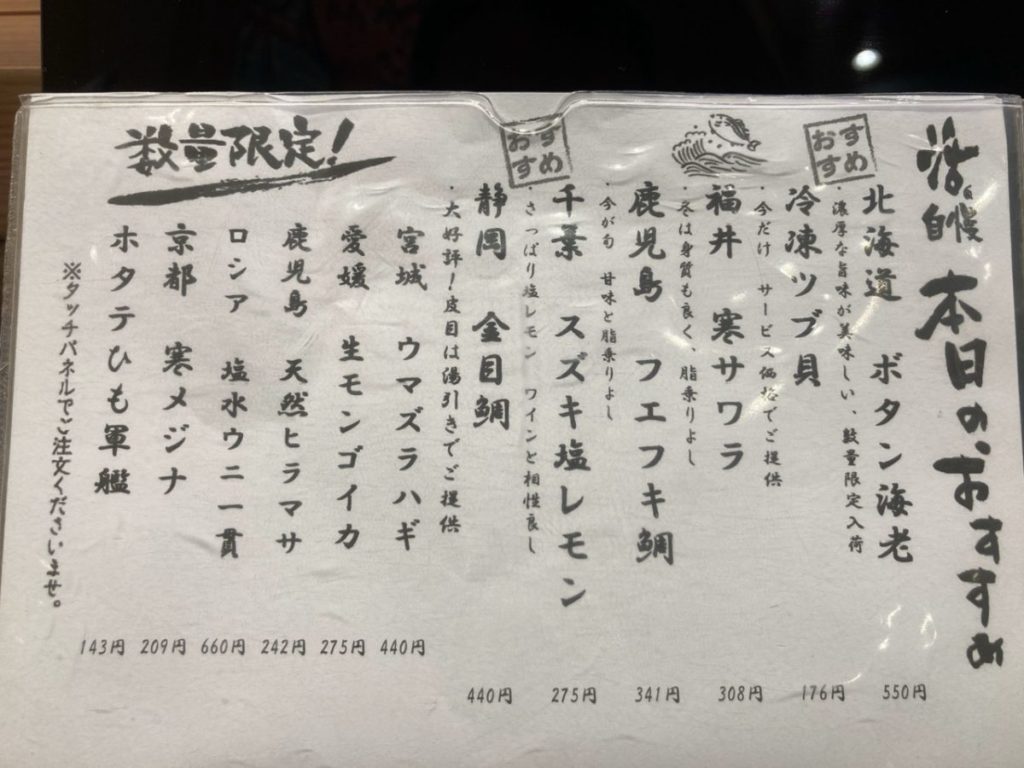 活〆自慢 本日の、おすすめ
おすすめ
北海道 ボタン海老
・濃厚な旨味が美味しい、数量限定入荷
550円
冷凍ツブ貝
・今だけ サービス価格でご提供
176円
福井 寒サワラ
・冬は身質も良く、脂乗りよし
308円
鹿児島 フエフキ鯛
・今が旬 甘味と脂乗りよし
341円
おすすめ
千葉 スズキ塩レモン
・さっぱり塩レモン ワインと相性良し
275円
静岡 金目鯛
・大好評!皮目は湯引きでご提供
440円
数量限定!
宮城 ウマズラハギ
440円
愛媛 生モンゴイカ
275円
鹿児島 天然ヒラマサ
242円
ロシア 塩水ウニ一貫
660円
京都 寒メジナ
209円
ホタテひも軍艦
143円
※タッチパネルでご注文くださいませ。